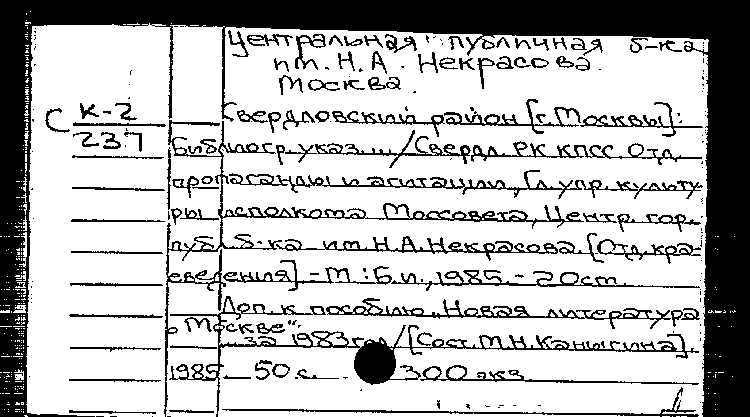 Центральная публичная б-ка
им. Н.А. Некрасова.
Москва.
С К-2
237
Свердловский район [г. Москвы]:
Библиогр. указ... / Свердл. РК КПСС. Отд.
пропаганды и агитации, Гл. упр. культу-
ры исполкома Моссовета, Центр. гор.
публ. б-ка им. Н.А. Некрасова. [Отд. кра-
еведения] - М.: Б.и., 1985. - 20 см.
Доп. к пособию „Новая литература
о Москве"
...за 1983 год / [Сост. М.Н. Каныгина].
1985. 50 с. 300 экз.